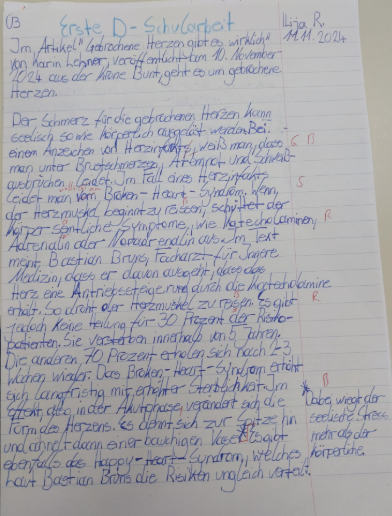 U3
Erste D-Schularbeit
Ilija R.
11.11.2024
Im Artikel "Gebrochene Herzen gibt es wirklich"
von Karin Lehner, veröffentlicht am 10. November
2024 aus der Krone Bunt, geht es um gebrochene
Herzen.
Der Schmerz für die gebrochenen Herzen kann
seelisch sowie körperlich ausgelöst werden. Bei
einem Anzeichen von Herzinfarkts, weiß man, dass
man unter Brustschmerzen, Atemnot und Schweiß-
ausbrüchen leidet. Im Fall eines Herzinfarkts
leidet man vom Broken-Heart-Syndrom. Wenn,
der Herzmuskel beginnt zu reissen, schüttet der
Körper sämtliche Symptome, wie Katecholaminen,
Adrenalin oder Noradrenalin aus. Im Text
meint, Bastian Bruns, Facharzt für Innere
Medizin, dass er davon ausgeht, dass das
Herz eine Antriebssteigerung durch die Kaptecholamine
erhält. So droht der Herzmuskel zu reissen. Es gibt
jedoch keine Heilung für 30 Prozent der Risiko-
patienten. Sie versterben innerhalb von 5 Jahren.
Die anderen, 70 Prozent erholen sich nach 2-3
Wochen wieder. Das Broken-Heart-Syndrom erhöht
sich langfristig mit erhöhter Sterblichkeit. Im
Effekt, dass, in der Akutphase, verändert sich die
Form des Herzens. Es dehnt sich zur Spitze hin
und ähnelt dann einer bauchigen Vase. Es gibt
ebenfalls das Happy-Heart-Syndrom, welches
laut Bastian Bruns die Risiken ungleich verteilt.
G B
S
R
R
B
Dabei wiegt der
seelische Stress
mehr als der
körperliche.